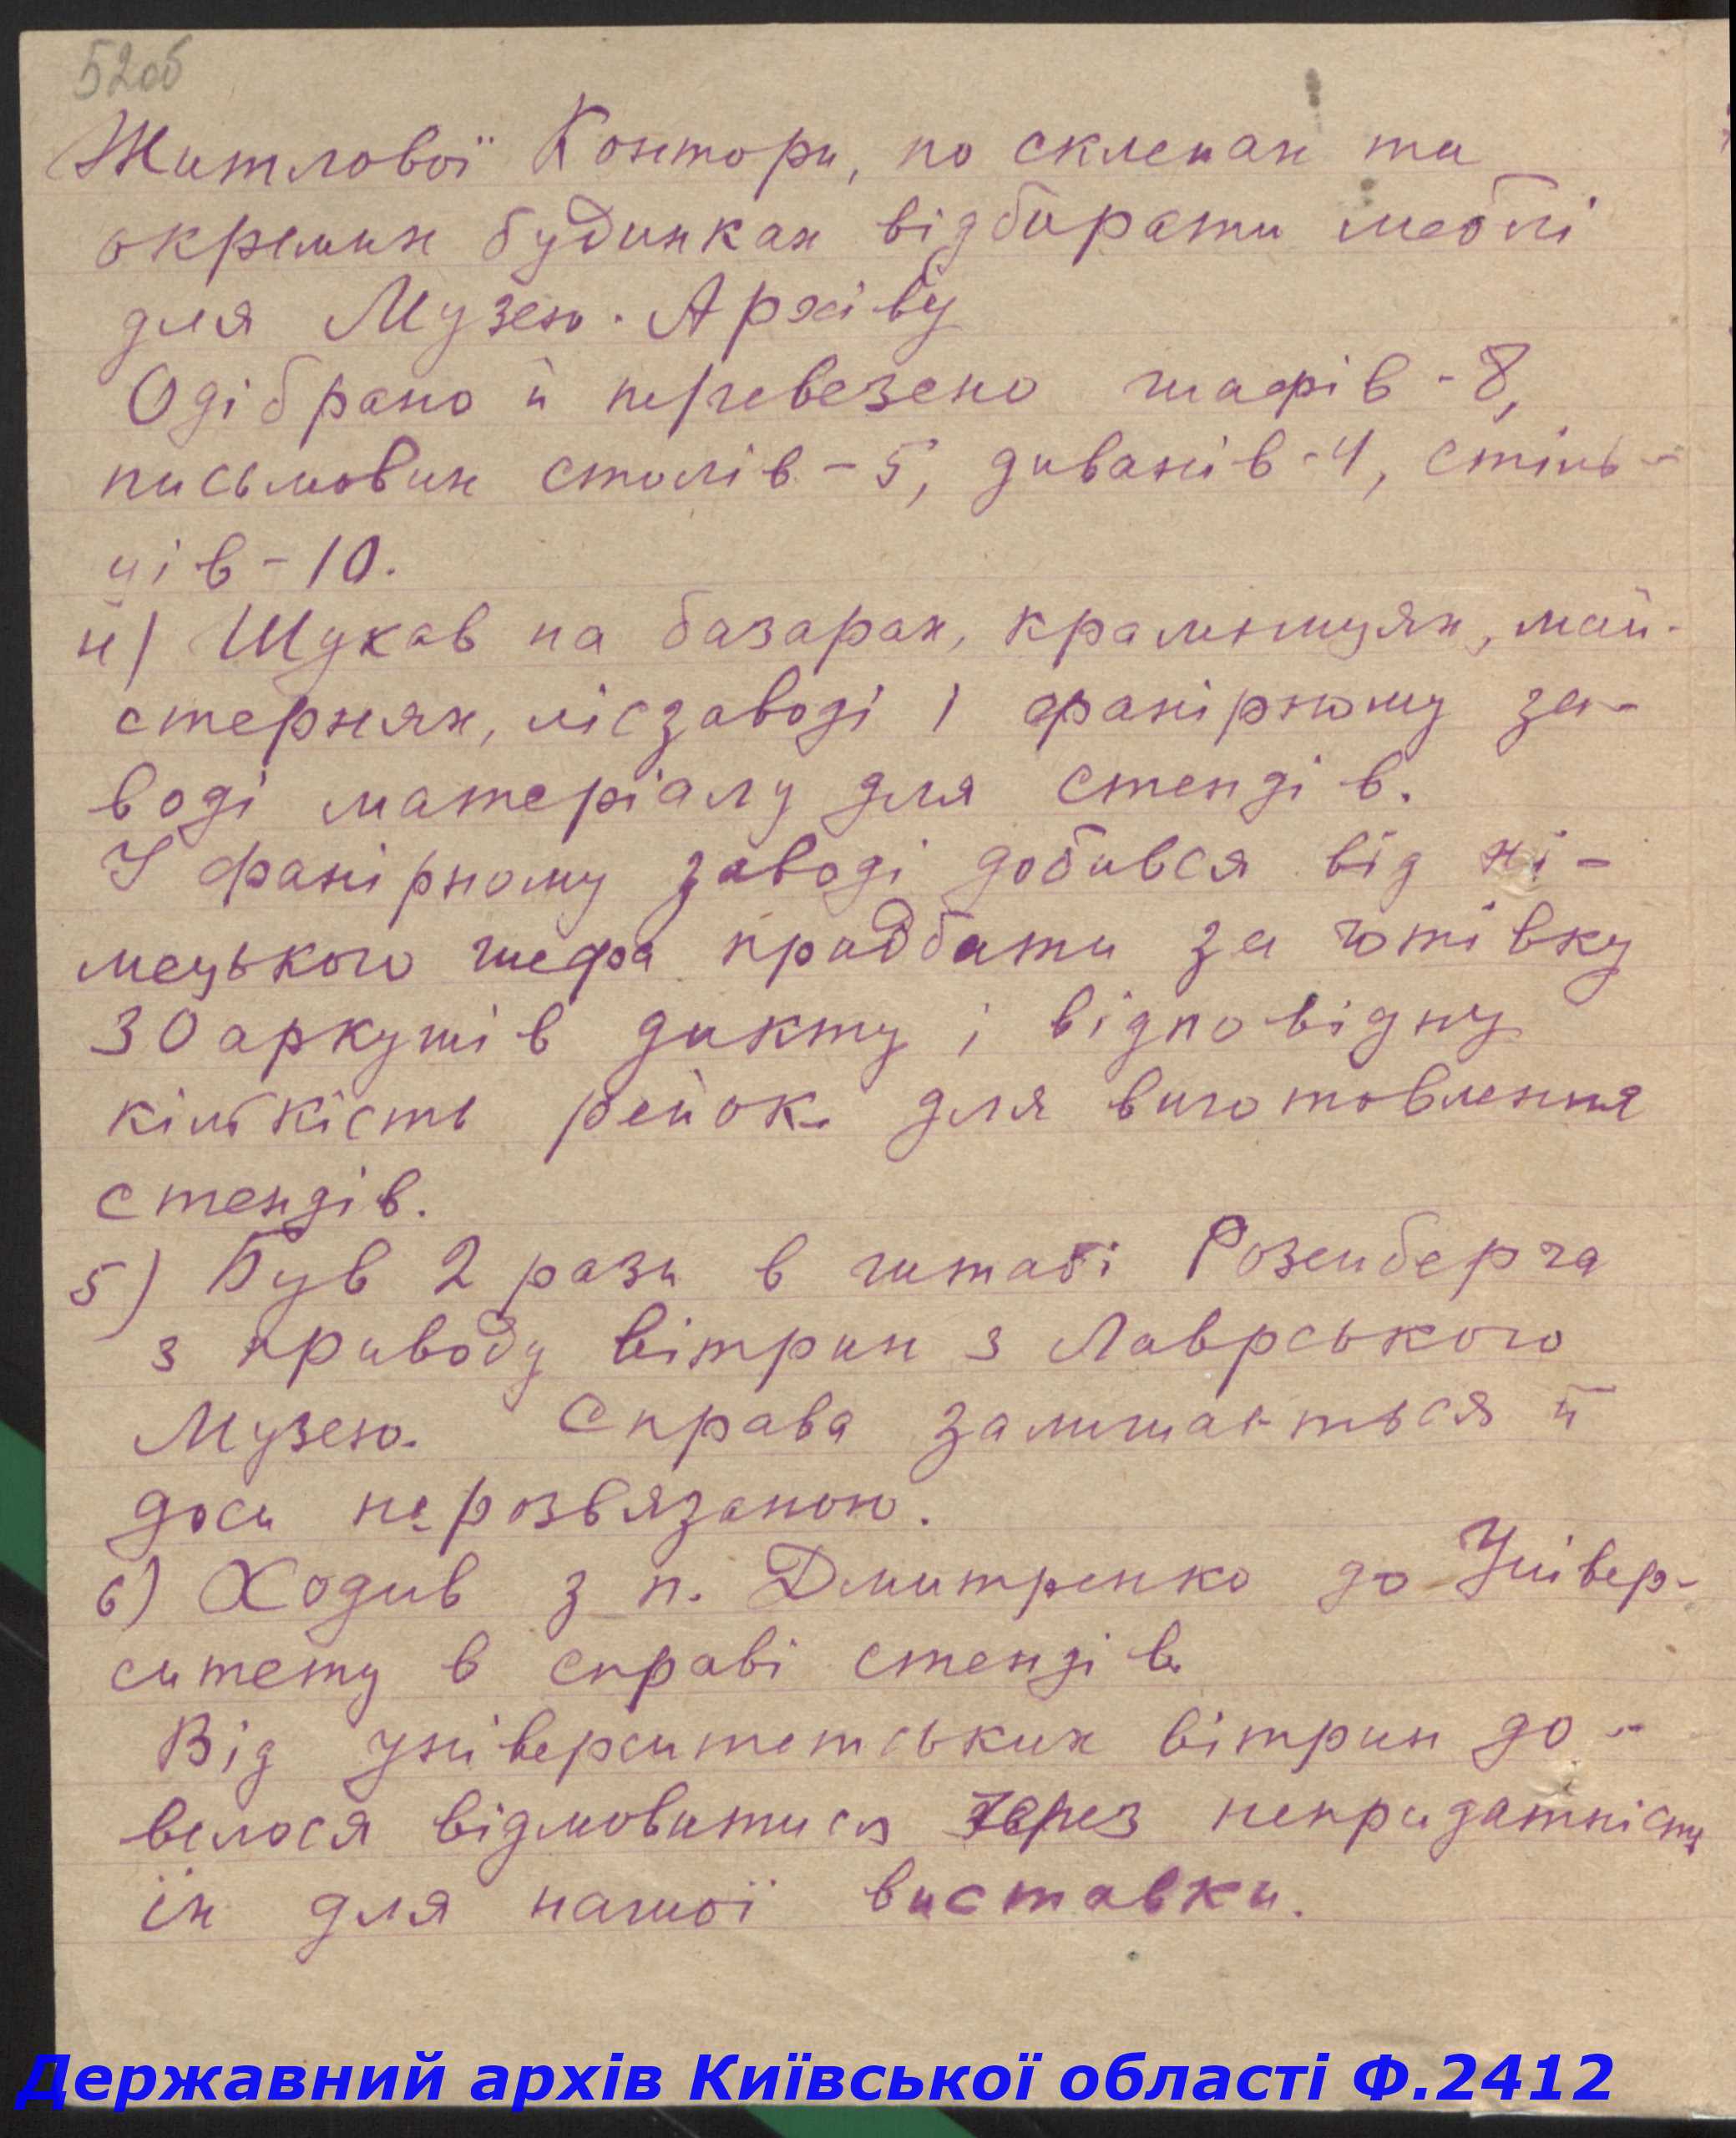 52об
Житлової Контори, по склепах та
окремих будинках відбирати меблі
для Музею-Архіву
Одібрано й перевезено шафів - 8,
письмових столів - 5, диванів - 4, стіль-
ців - 10.
4) Шукав на базарах, крамницях, май-
стернях, лісзаводі і фанірному за-
воді матеріалу для стендів.
У фанірному заводі добився від ні-
мецького шефа придбати за готівку
30 аркушів дикту і відповідну
кількість рейок для виготовлення
стендів.
5) Був 2 рази в штабі Розенберга
з приводу вітрин з Лаврського
Музею. Справа залишається й
доси нерозвязаною.
6) Ходив з п. Дмитренко до Універ-
ситету в справі стендів.
Від університетських вітрин до-
велося відмовитися через непридатність
їх для нашої виставки.
Державний архів Київської області Ф.2412